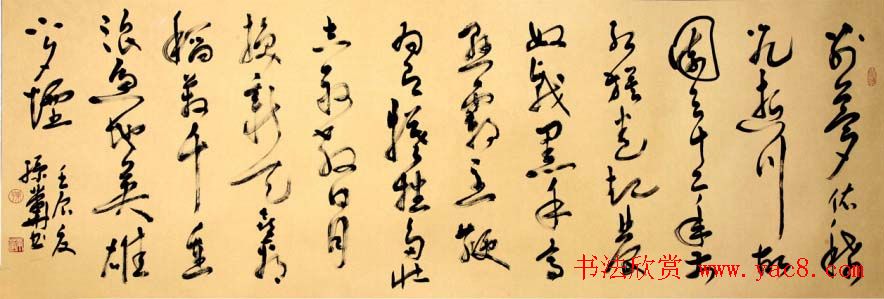 别夢依稀
咒逝川故
園三十二年前
红旗卷起農
奴戟黑手高
悬霸主鞭
为有犠牲多壮
志敢教日月
换新天喜看
稻菽千重
浪遍地英雄
下夕煙
壬辰夏
书法欣赏
www.yac8.com